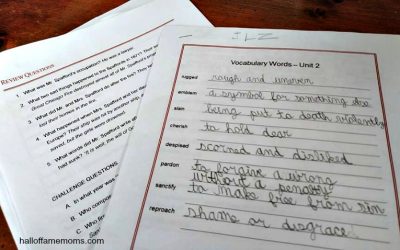 REVIEW QUESTIONS
1. What was Mr. Spafford's occupation? He was a lawyer.
2. What two sad things happened to the Spaffords in 1871? Their
Great Chicago Fire destroyed
3. What did Mr. and Mrs. Spafford do after the fire? They
lost their homes in the fire.
4. What happened when Mrs. Spafford and her
Europe? Their ship was hit by another ship
rescued, but the girls were drowned.
5. What words did Mr. Spafford
had died? "It is well, the will of God
CHALLENGE QUESTIONS
A. In what year was
B. Who composed
C. Who
D.
JLZ
Vocabulary Words – Unit 2
rugged rough and uneven
emblem a symbol for something else
slain being put to death violently
cherish to hold dear
despised scorned and disliked
pardon to forgive a wrong
without a penalty
sanctify to make free from sin
reproach shame or disgrace
halloffamemoms.com